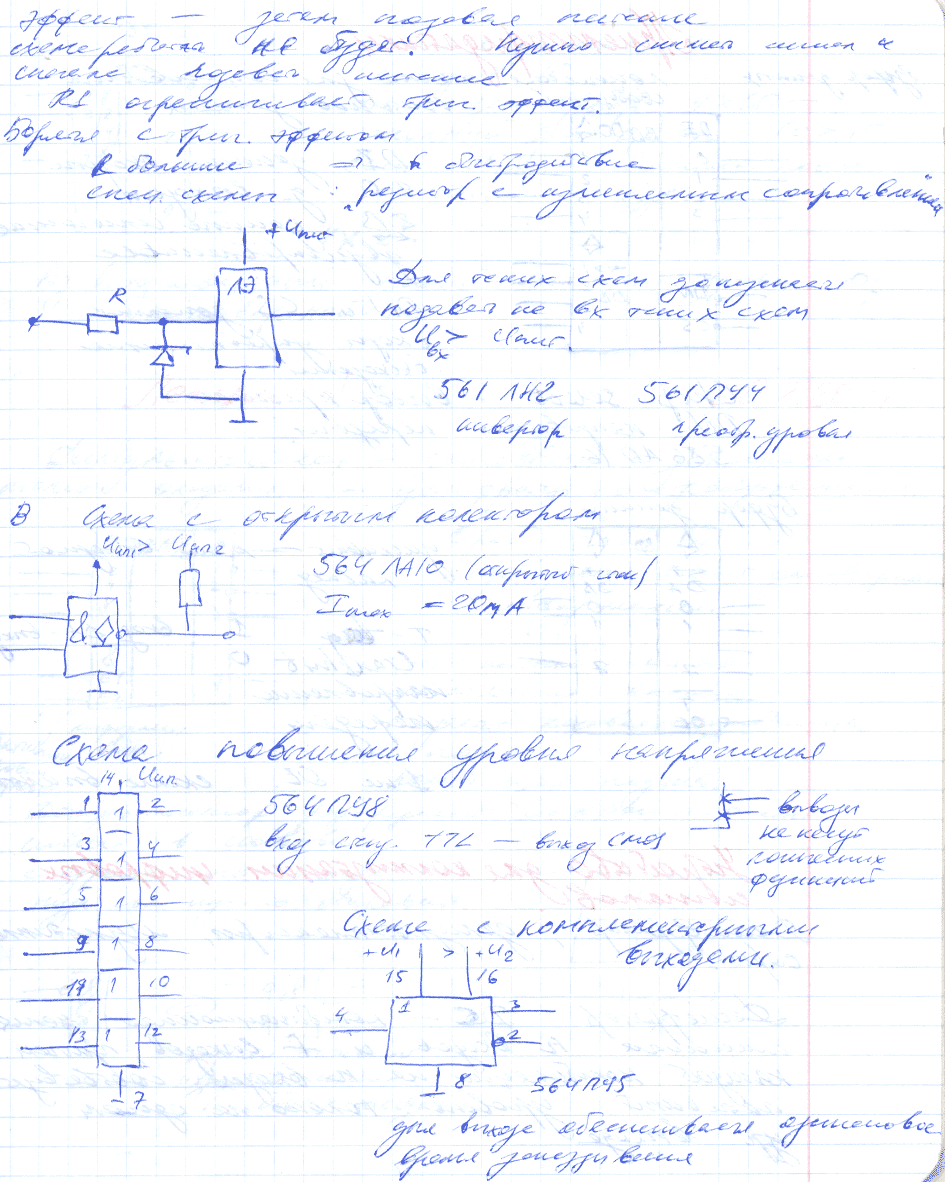 эффект — затем подавая питание
схема работать не будет. Нужно снимать сигнал и
сначала подавать питание
R1 ограничивает триг. эффект.
Борятся с триг. эффектом
R большие => быстродействие
спец. схемы : резистор с изменяемым сопротивлением
+ Uпит
R
ЛЭ
Для таких схем допускается
подавать на вх таких схем
Uвх > Uпит.
561 ЛН2
561 ПУ4
инвертор
преобр. уровня
В Схема с открытым колектором
Uип1 > Uип2
&
564 ЛА10 (открытый сток)
Imax = 20mA
Схема повышения уровня напряжения
14 Uип.
1 1 2
3 1 4
5 1 6
9 1 8
1 10
13 1 12
7
564ПУ8
вход TTL — выход CMOS
выводы
не несут
логических
функций
Схема с комплементарными
выходами.
+U1 > +U2
15 16
4 1 3
2
8
564ПУ5
для выхода обеспечивается одинаковое
время запаздывания